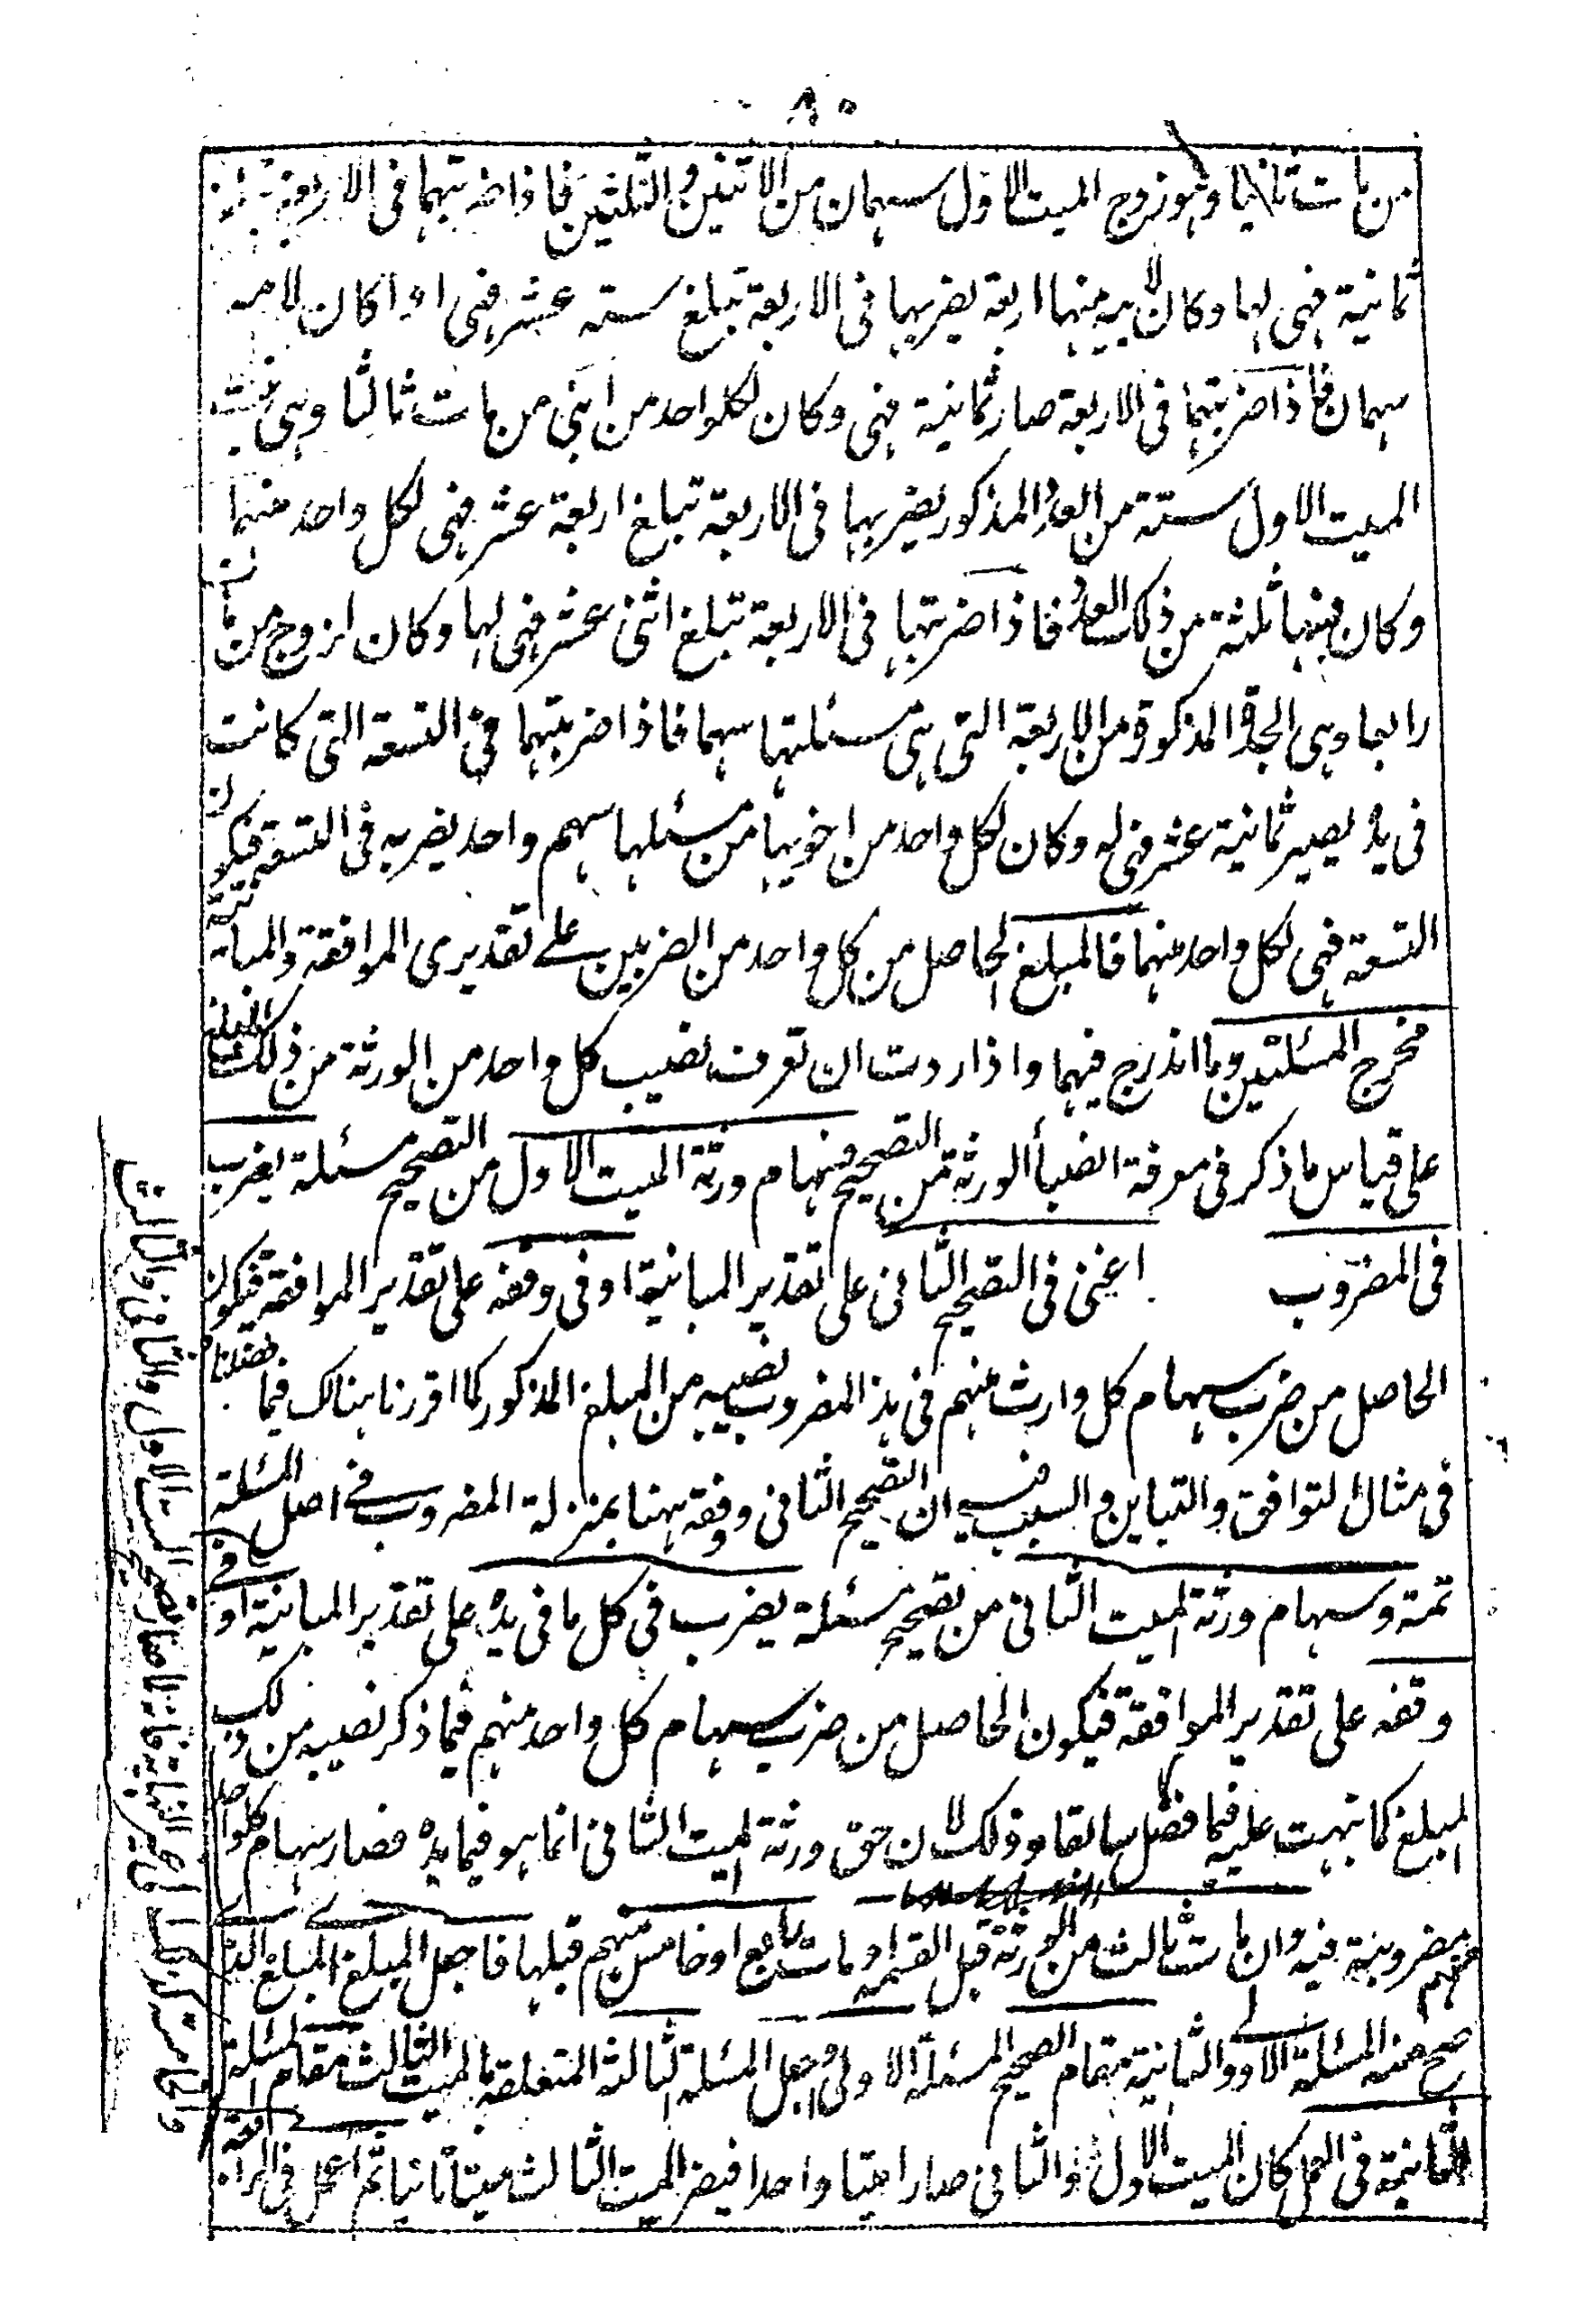 ٨٠
من مات ثانيا وهو زوج الميت الاول سهمان من الاثنين والثلثين فاذا ضربتهما في الاربعة
ثمانية فهي لها وكان لابيه منها اربعة يضربها في الاربعة تبلغ ستة عشر فهي له وكان لامه
سهمان فاذا ضربتهما في الاربعة صار ثمانية فهي وكان لكلواحد من ابني من مات ثالثا وهي بنت
الميت الاول ستة من العدد المذكور يضربها في الاربعة تبلغ اربعة عشر فهي لكل واحد منهما
وكان لبنتها ثلثة من ذلك العدد فاذا ضربتها في الاربعة تبلغ اثنى عشر فهي لها وكان لزوج من مات
رابعا وهي الجدة المذكورة من الاربعة التي هي مسئلتها سهما فاذا ضربتهما في التسعة التي كانت
في يده يصير ثمانية عشر فهي له وكان لكل واحد من اخويها من مسئلها سهم واحد يضربه في التسعة فيكون
التسعة فهي لكل واحد منهما فالمبلغ الحاصل من كل واحد من الضربين على تقديري الموافقة والمباينة
مخرج المسئلتين وما اندرج فيهما واذا اردت ان تعرف نصيب كل واحد من الورثة من ذلك المبلغ
على قياس ما ذكر في معرفة انصباء الورثة من التصحيح فسهام ورثة الميت الاول من التصحيح مسئلة يضرب
في المضروب اعني في التصحيح الثاني على تقدير المباينة او في وفقه على تقدير الموافقة فيكون
الحاصل من ضرب سهام كل وارث منهم في هذا المضروب نصيبه من المبلغ المذكور كما اقررنا هنالك فيما فصلنا
في مثال التوافق والتباين والسبب فيه ان التصحيح الثاني ووفقه ههنا بمنزلة المضروب في اصل المسئلة
ثمة وسهام ورثة الميت الثاني من تصحيح مسئلة يضرب في كل ما في يده على تقدير المباينة او في
وفقه على تقدير الموافقة فيكون الحاصل من ضرب سهام كل واحد منهم فيما ذكر نصيبه من ذلك
المبلغ كما نبهت عليه فيما فصل سابقا وذلك لان حق ورثة الميت الثاني انما هو فيما يده فصار سهام كلواحد
منهم مضروبة فيه وان مات ثالث من الورثة قبل القسمة او مات رابع او خامس منهم قبلها فاجعل المبلغ المبلغ الذي
صح منه المسئلة الاولى والثانية مقام التصحيح المسئلة الاولى واجعل المسئلة الثالثة المتعلقة بالميت الثالث مقام المسئلة
الثانية في العمل كان الميت الاول والثاني صارا ميتا واحدا فيصير الميت الثالث ميتا ثانيا ثم اعمل في الرابعة